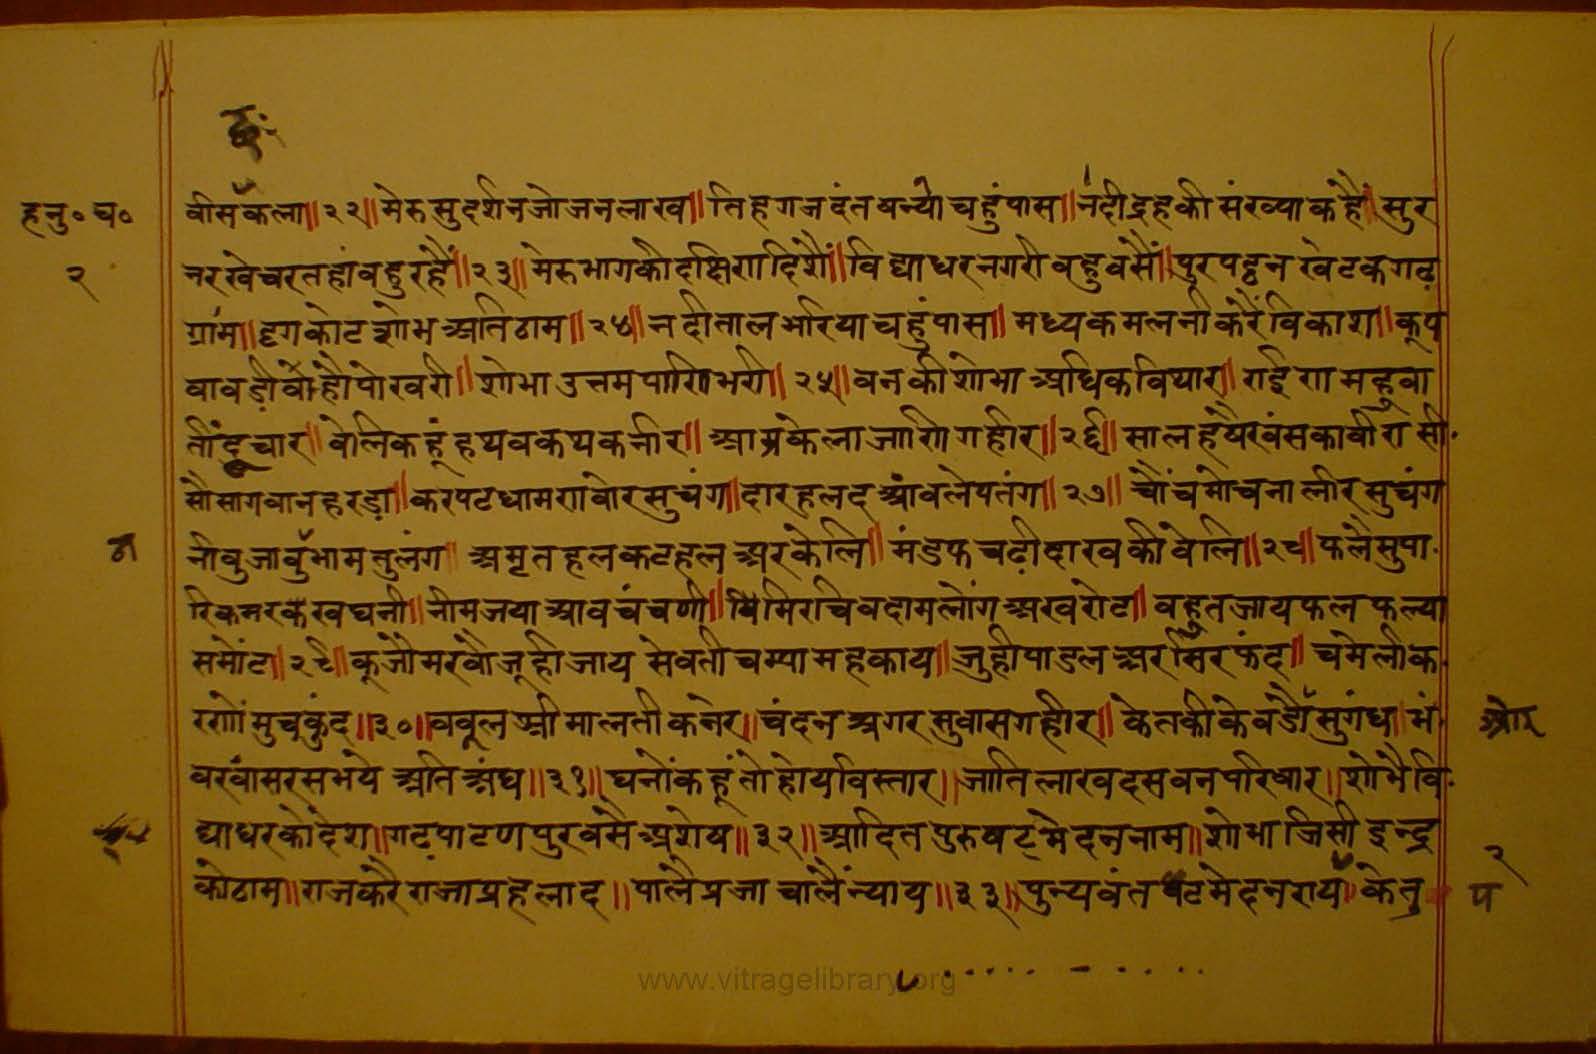 द्धः
हनु॰ च॰
२
वीसकला॥२२॥मेरुसुदर्शनजोजनलाख॥तिहगजदंतयन्योचहुंपास॥नंदीद्रहकीसंख्याकहै॥सुर
नरखेचरतहांवहुरहैं॥२३॥मेरुभागकीदक्षिणदिशैं॥विद्याधरनगरीवहुवसैं॥पुरपट्टनखेटकगढ़
ग्रांम॥द्दगकोटशोभअतिठाम॥२४॥नदीतालभरियाचहुंपास॥मध्यकमलनीकरैंविकाश॥कूप
वावड़ीवोहौपोखरी॥शोभाउत्तमपाणिभरी॥२५॥वनकीशोभाअधिकवियार॥राईणमहुवा
तींदूचार॥वेलिकहूंहयवकयकनीर॥आम्रकेलाजाणिगहीर॥२६॥सालहैयैरवंसकावीरासी
सौसागवानहरड़ा॥करपटधामणवोरसुचंग॥दारहलदआंवलेपतंग॥२७॥चौंचमोचनालीरसुचंग
नीवुजांवुभामतुलंग॥अमृतहलकटहलअरकेलि॥मंडफचढ़ीदाखकीवेलि॥२८॥फलैसुपा
रिकमरकखघनी॥नीमजयाआवचंचणी॥मिरचिवदामलोंगअखरोट॥वहुतजायफलफल्या
समोंट॥२९॥कूजौमरवौजूहीजाय सेवतीचम्पामहकाय॥जुहीपाडलअरसिरफंद॥चमेलीक
रणोंमुचकुंद॥३०॥ववूलश्रीमालतीकनेर॥चंदनअगरसुवासगहीर॥केतकीकेवडौसुगंध॥भं
वरवांसरसभयेअतिअंध॥३१॥घनोंकहूंतोहोयविस्तार॥जातिलाखदसवनपरिवार॥शोभैवि
द्याधरकोदेश॥गढ़पाटणपुरवसैअशेष॥३२॥आदितपुरुषट्मेदननाम॥शोभाजिसीइन्द्र
कोठाम॥राजकरैराजाप्रहलाद॥पालैप्रजाचालैंन्याय॥३३॥पुन्यवंतषटमेदनराय॥केतु
ओर
२
प
www.vitragelibrary.org